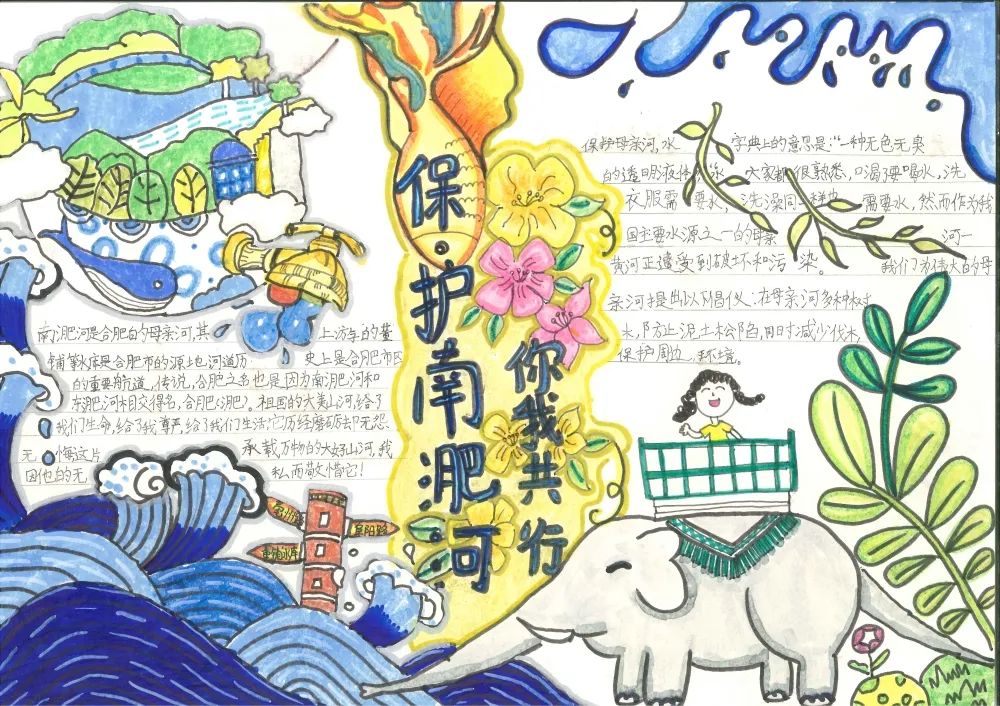 保护南淝河
你我共行
南淝河是合肥的母亲河,其 上游的董
铺水库是合肥市的源地,河道历 史上是合肥市区
的重要航道。传说,合肥之名也是因为南淝河和
东淝河相交得名,合肥(淝)。祖国的大美山河,给了
我们生命,给了我尊严,给了我们生活,它历经磨砺 无怨
无 悔 这片 承载万物的大好山河,我
因他的无 私而敬惜它!
亳州路
阜阳路
董铺水库
保护母亲河,水 字典上的意思是:“一种无色无臭
的透明液体” 水 大家都很熟悉,口渴了要喝水,洗
衣服需要水,洗澡同样 需要水,然而作为我
国主要水源之一的母亲 河一
黄河正遭受到破坏和污染。 我们为伟大的母
亲河提出以下倡仪:在母亲河多种树
木,防止泥土松陷,同时减少伐木,
保护周边环境。